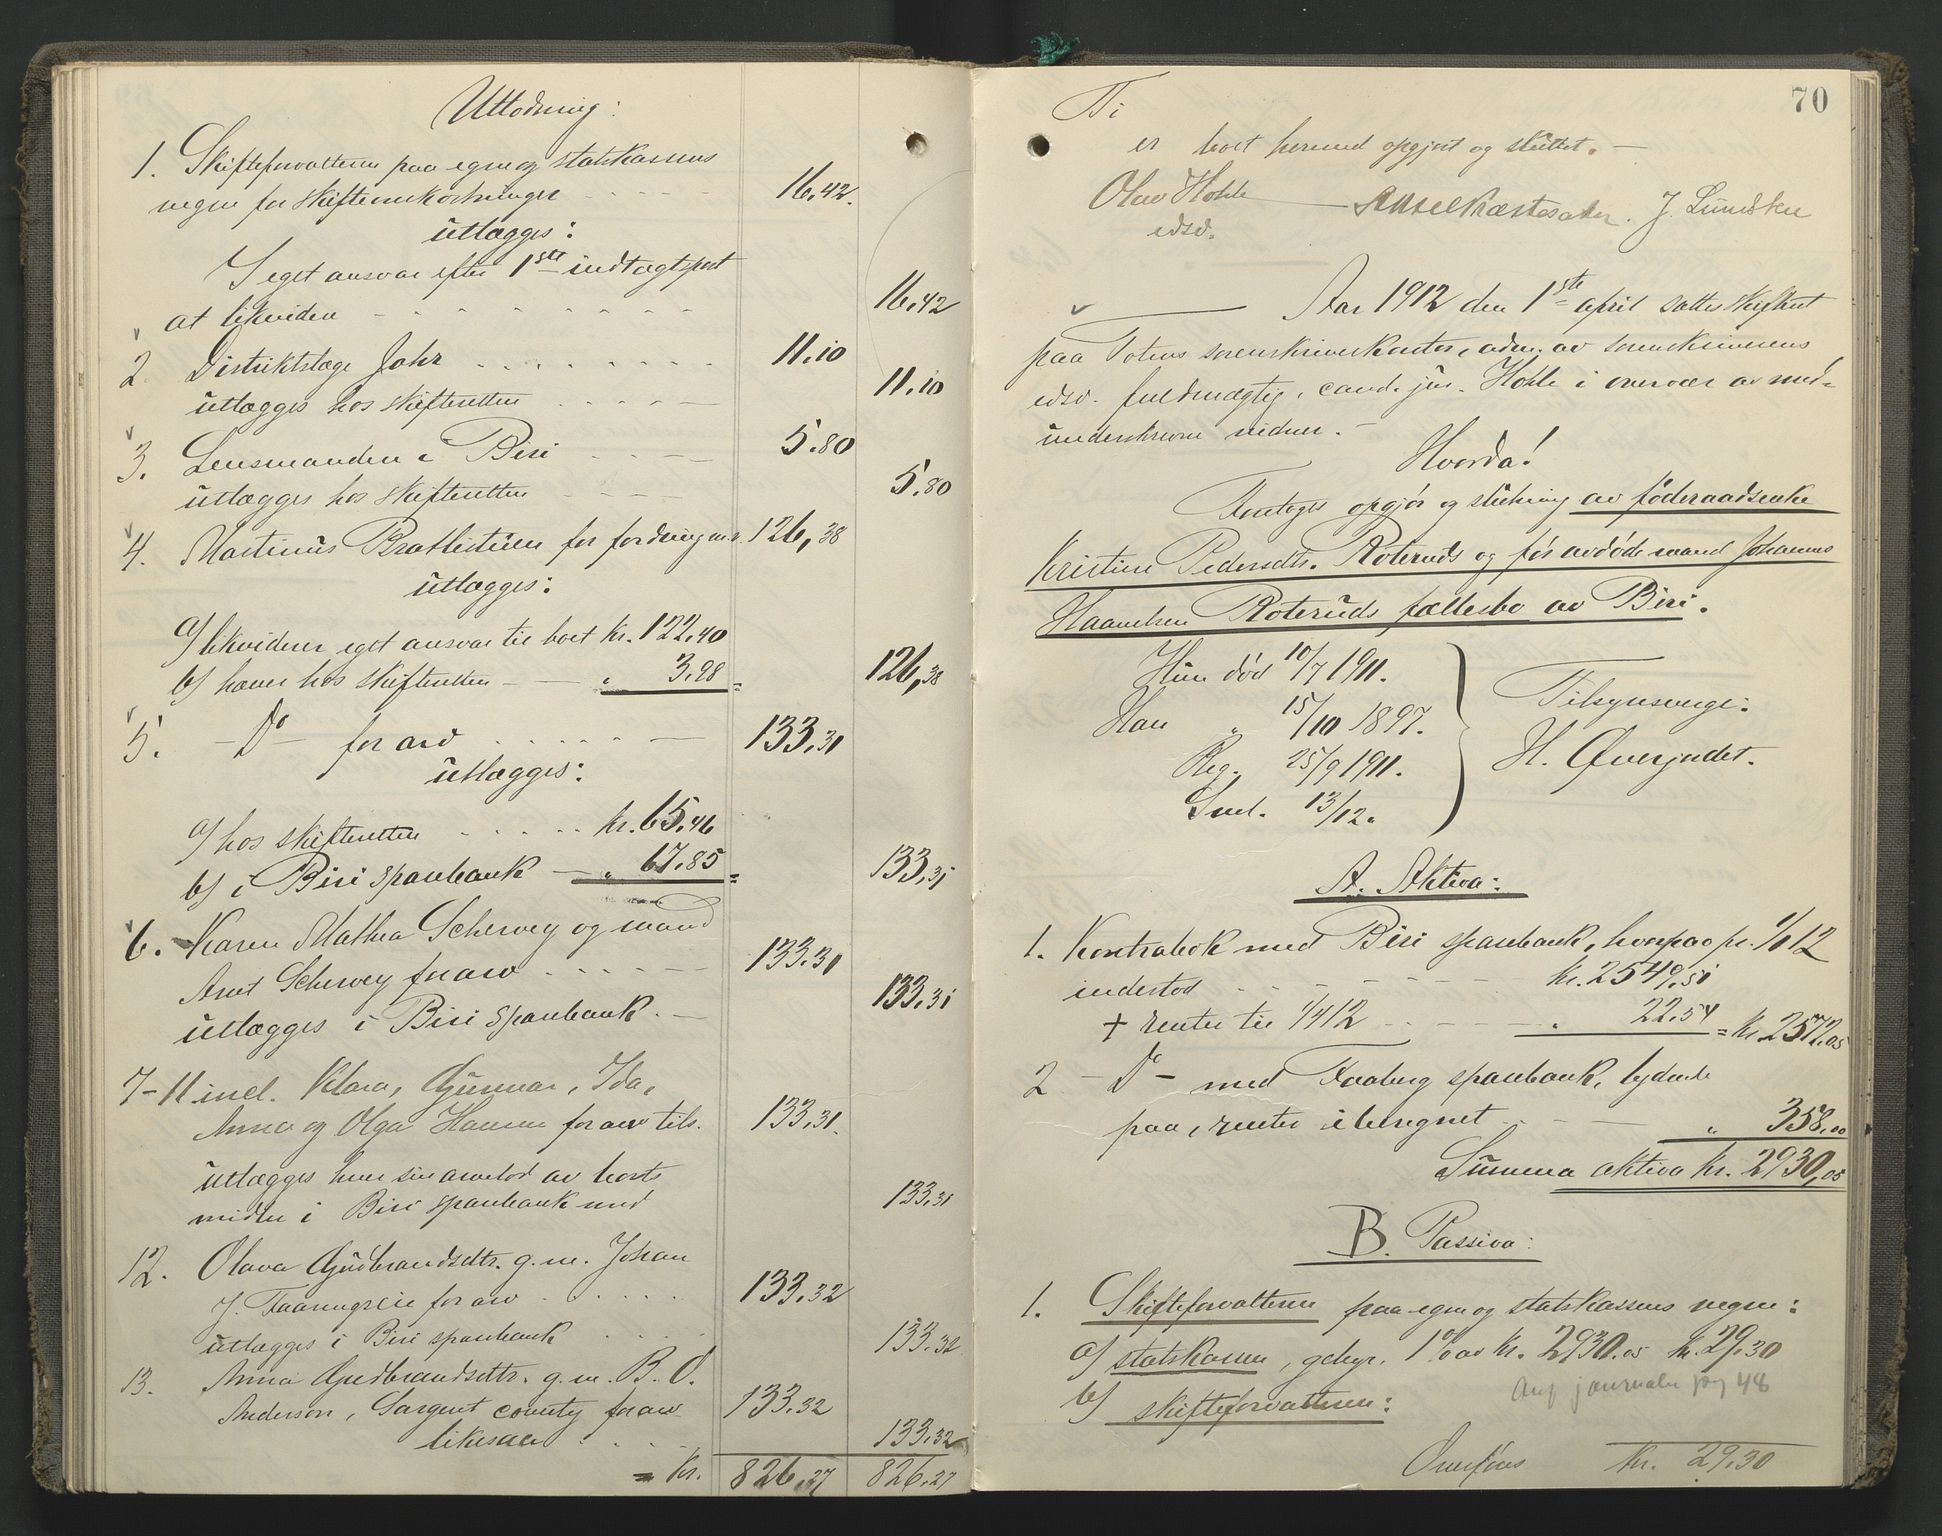 Utlodning:
1. Skifteforvalteren paa egne og statskassens
vegne for skifteomkostninger 16,42.
utlægges:
I eget ansvar efter 1ste indtægtspost
at likvidere 16,42
2. Distriktslæge Johr 11.10
utlægges hos skifteretten 11.10
3. Lensmanden i Biri 5.80
utlægges hos skifteretten 5.80
4. Martinus Bratlistuen for fordring m.v. 126,38
utlægges:
a/ likviderer eget ansvar til boet kr. 122,40
b/ hæver hos skifteretten " 3,98 = 126,38
5. - Do - for arv 133,31
utlægges:
a/ hos skifteretten kr. 65,46
b/ i Biri sparebank " 67,85 = 133,31
6. Karen Mathea Schervey og mand
Arnt Schervey for arv 133.31
utlægges i Biri sparebank. 133,31
7-11 incl. Klara, Gunnar, Ida,
Anna og Olga Hansen for arv tils. 133,31.
utlægges hver sin arvelod av boets
midler i Biri sparebank med 133,31
12. Olava Gudbrandsdtr. g.m. Johan
J. for arv 133,32
utlægges i Biri sparebank 133,32
13. Anna Gudbrandsdtr. g.m. B. O.
Anderson, Sargent county for arv 133,32
likesaa 133,32
= Kr. 826,27 826,27
70
Ti
er boet hermed opgjort og sluttet. -
Olav Hohle J. Lundsken
edsv.
Aar 1912 den 1ste april sattes skifteret
paa Totens sorenskriverkontor, adm. av sorenskriverens
edsv. fuldmægtig, cand. jur. Hohle i overvær av med-
underskrevne vidner. -
Hvorda!
Foretoges opgjør og slutning av føderaadsenke
Kristine Pedersdtr. Roteruds og før avdøde mand Johannes
Haavelsen Roteruds fællesbo av Biri.
Hun død 10/7 1911.
Han " 15/10 1897.
Reg. 25/9 1911.
Snl. 13/12.
Tilsynsverge:
H. Øverjordet.
A. Aktiva:
1. Kontrabok med Biri sparebank, hvorpaa pr. 1/1 12
indestod kr. 2549,51
+ renter til 1/4 12 " 22,54 = kr. 2572,05
2 - Do - med Faaberg sparebank, lydende
paa, renter iberegnet " 358,00
Summa aktiva kr. 2930,05
B. Passiva:
1. Skifteforvalteren paa egne og statskassens vegne:
a/ statskassen, gebyr. 1% av kr. 2930.05 kr. 29,30
b/ skifteforvalteren:
Anf journalen pag 48
Overføres kr. 29,30